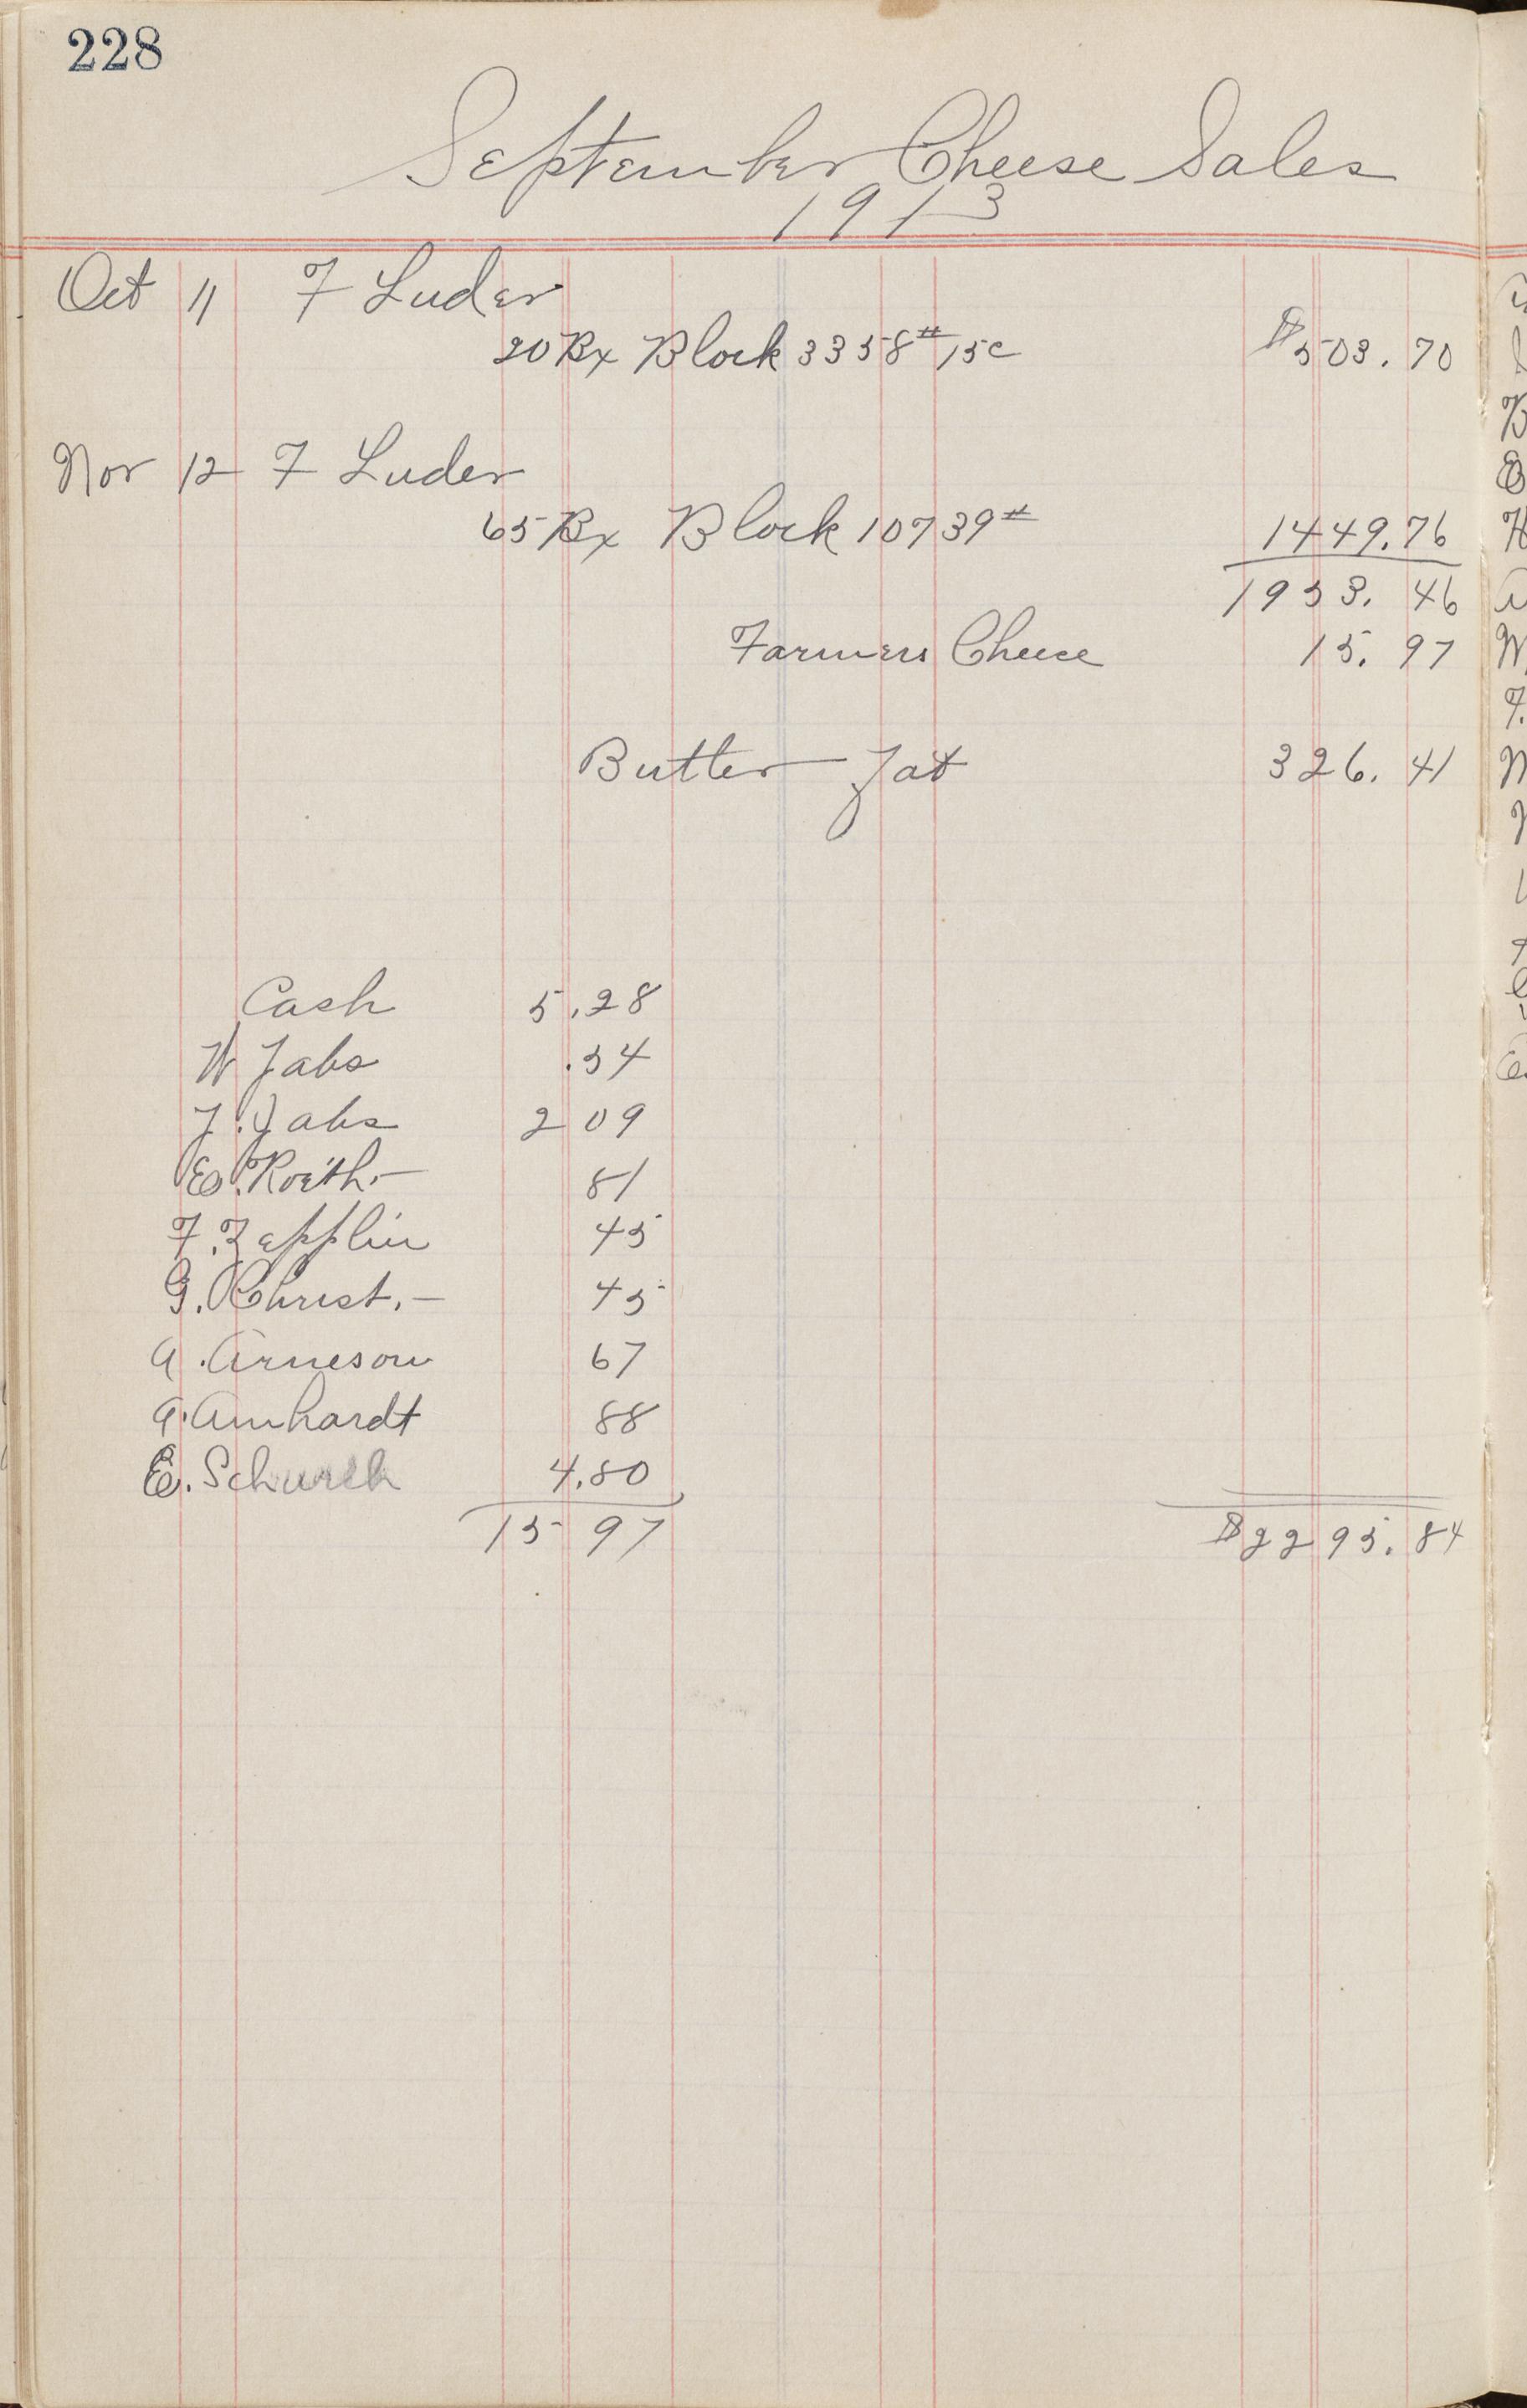 228
September Cheese Sales
1913
Oct 11 F Luder
20 Bx Block 3358# 15c $503.70
Nov 12 F Luder
65 Bx Block 10739# 1449.76
1953.46
Farmers Cheese 15.97
Butter Fat 326.41
Cash 5.28
W Jabs .54
J. Jabs 2 09
E. Roeth.— 81
F. Zepplin 45
G. Christ.— 45
A. Arneson 67
A. Amhardt 88
E. Schurch 4.80
15 97 $2295.84